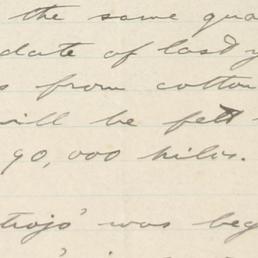 the same qua
date of last y
s from cotton
will be felt
90,000 kilos.
trojo' was beg